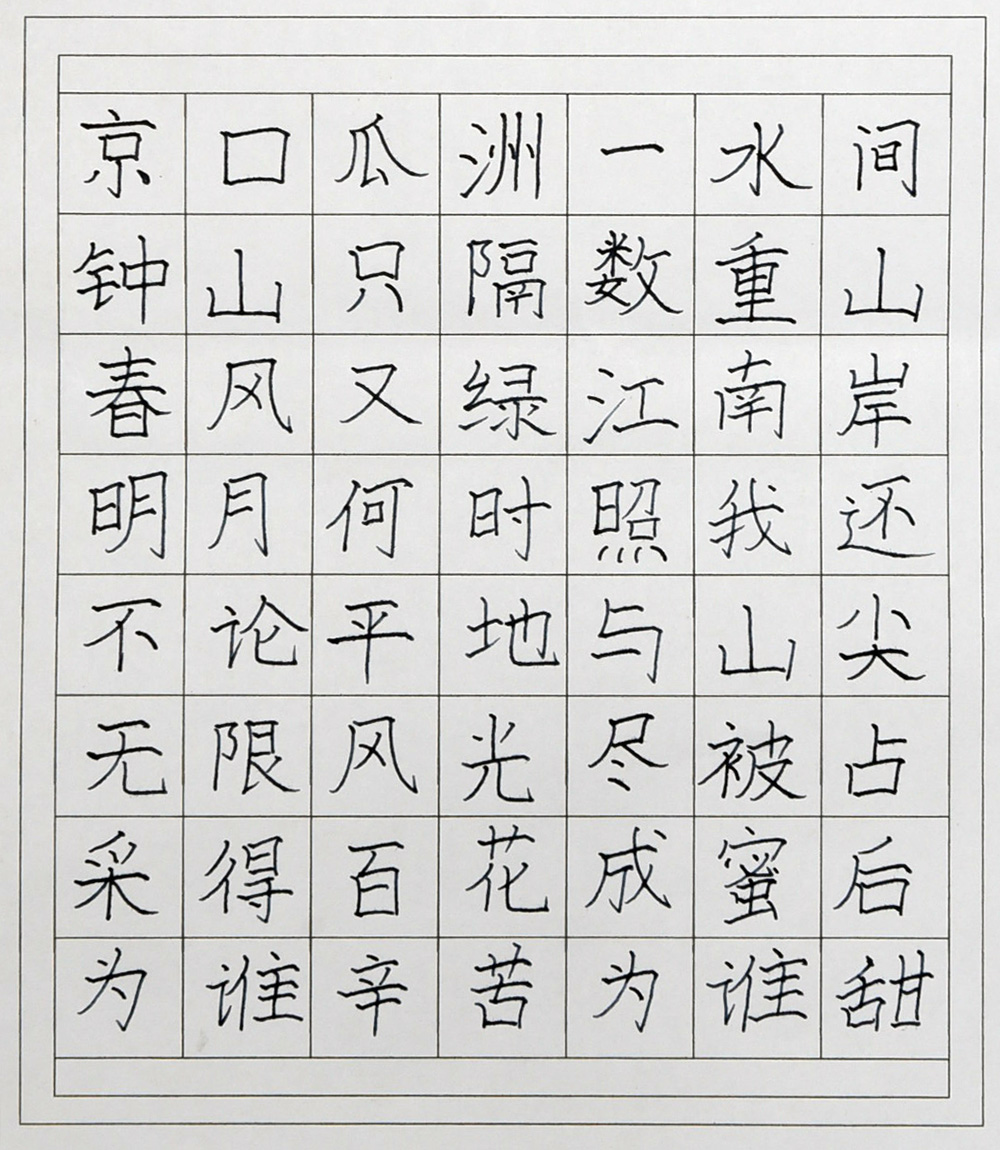 京口瓜洲一水间
钟山只隔数重山
春风又绿江南岸
明月何时照我还
不论平地与山尖
无限风光尽被占
采得百花成蜜后
为谁辛苦为谁甜